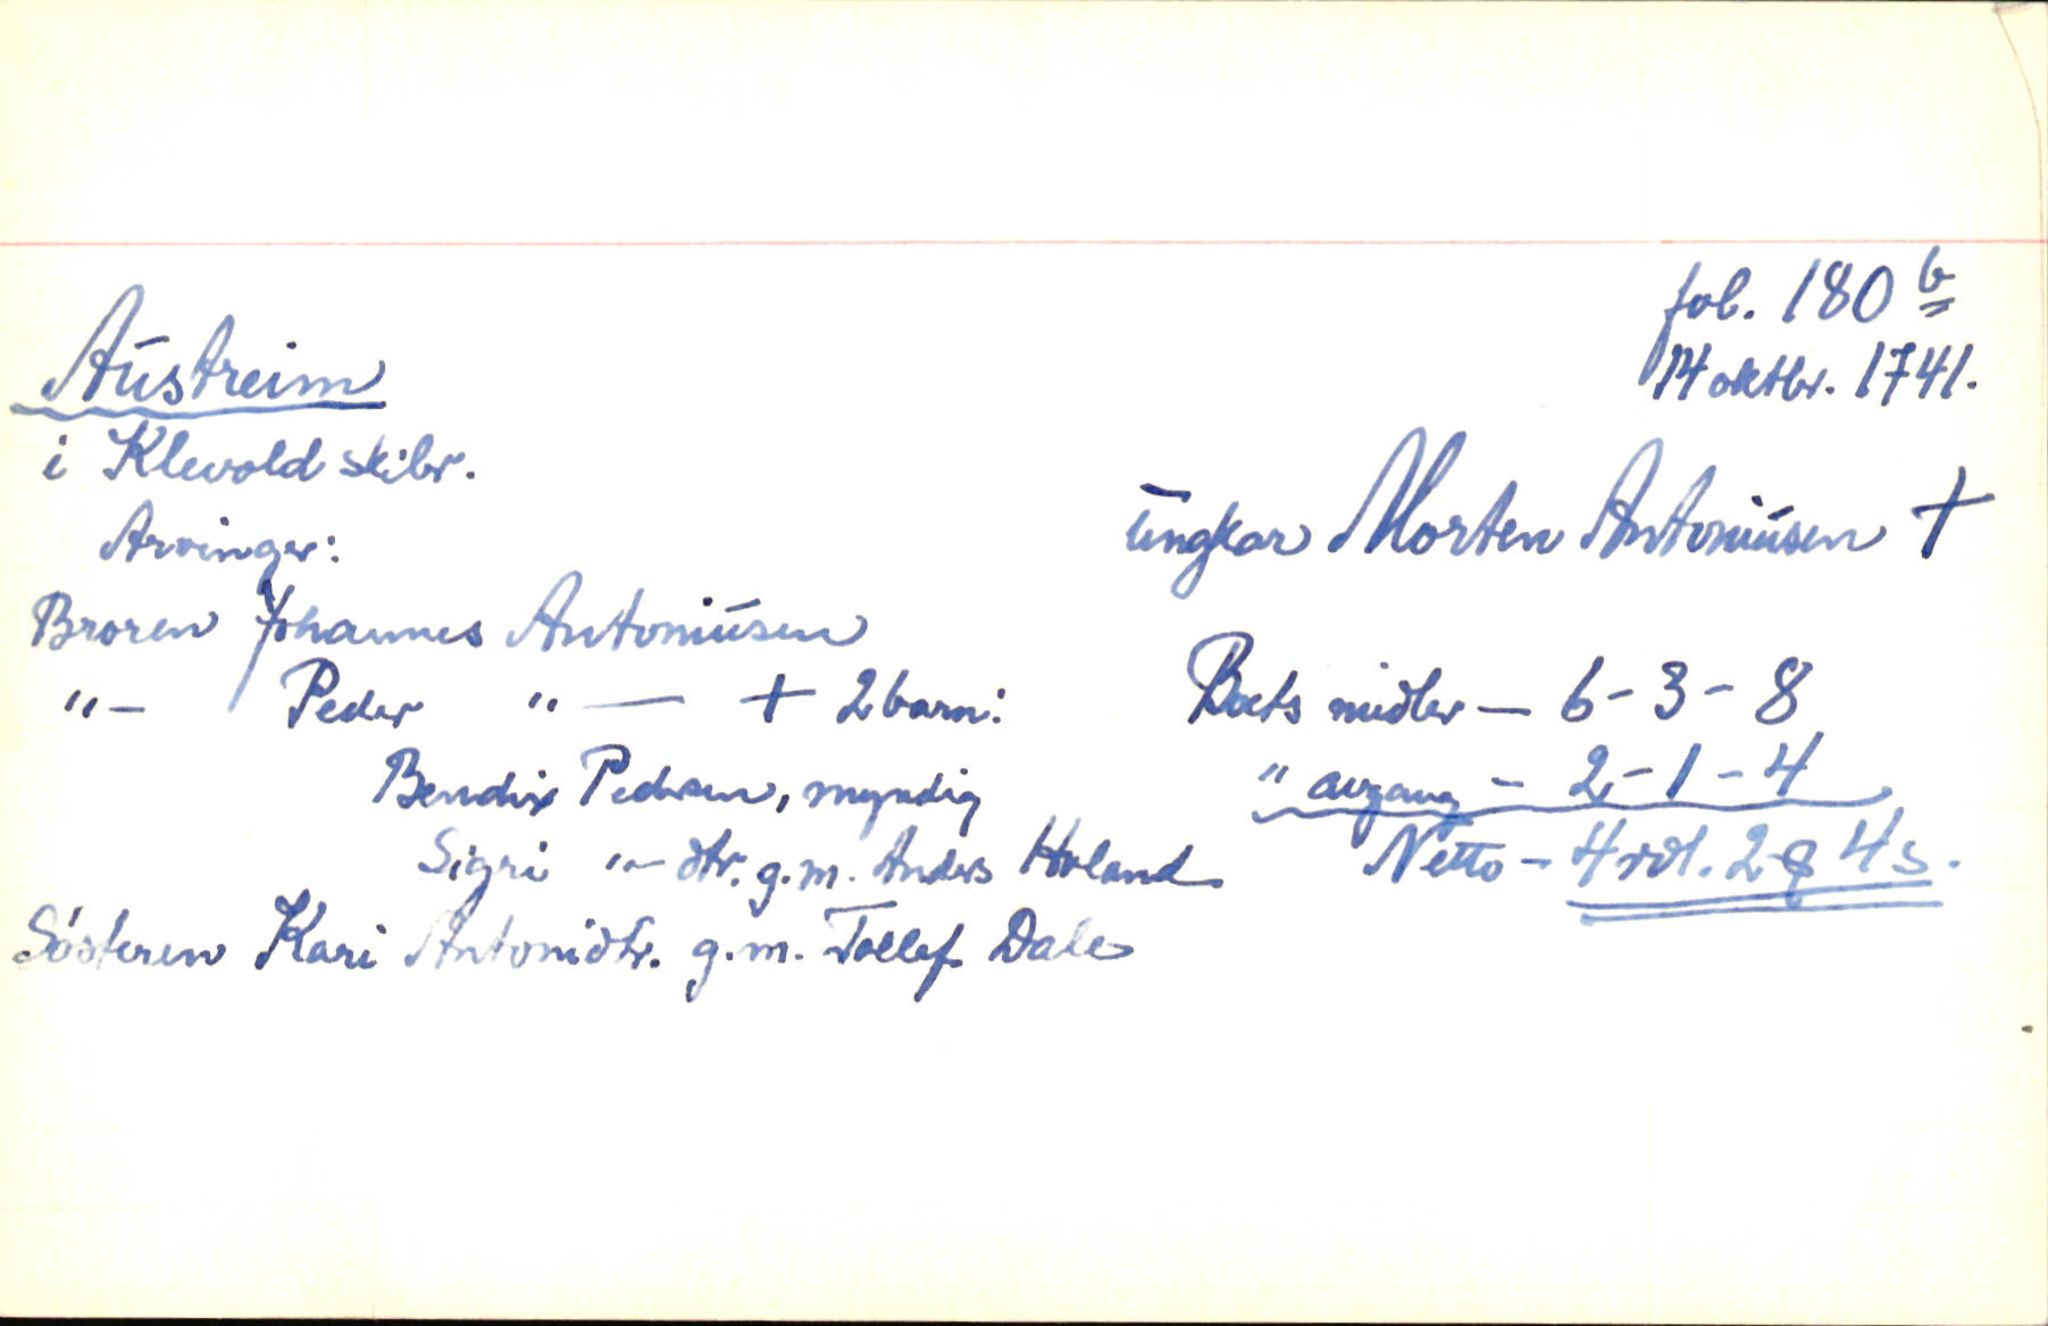 fol. 180 b
14 oktbr. 1741.
Austreim
i Klevold skibr.
ungkar Morten Antoniusen +
Arvinger:
Broren Johannes Antoniusen
"— Peder "— + 2 barn:
Boets midler — 6 - 3 - 8
Bendix Pedersen, myndig
" avgang - 2 - 1 - 4
Sigri "— dtr. g.m. Anders Holand
Netto - 4 rdl. 2 q 4 s.
Søsteren Kari Antonidtr. g.m. Tollef Dale